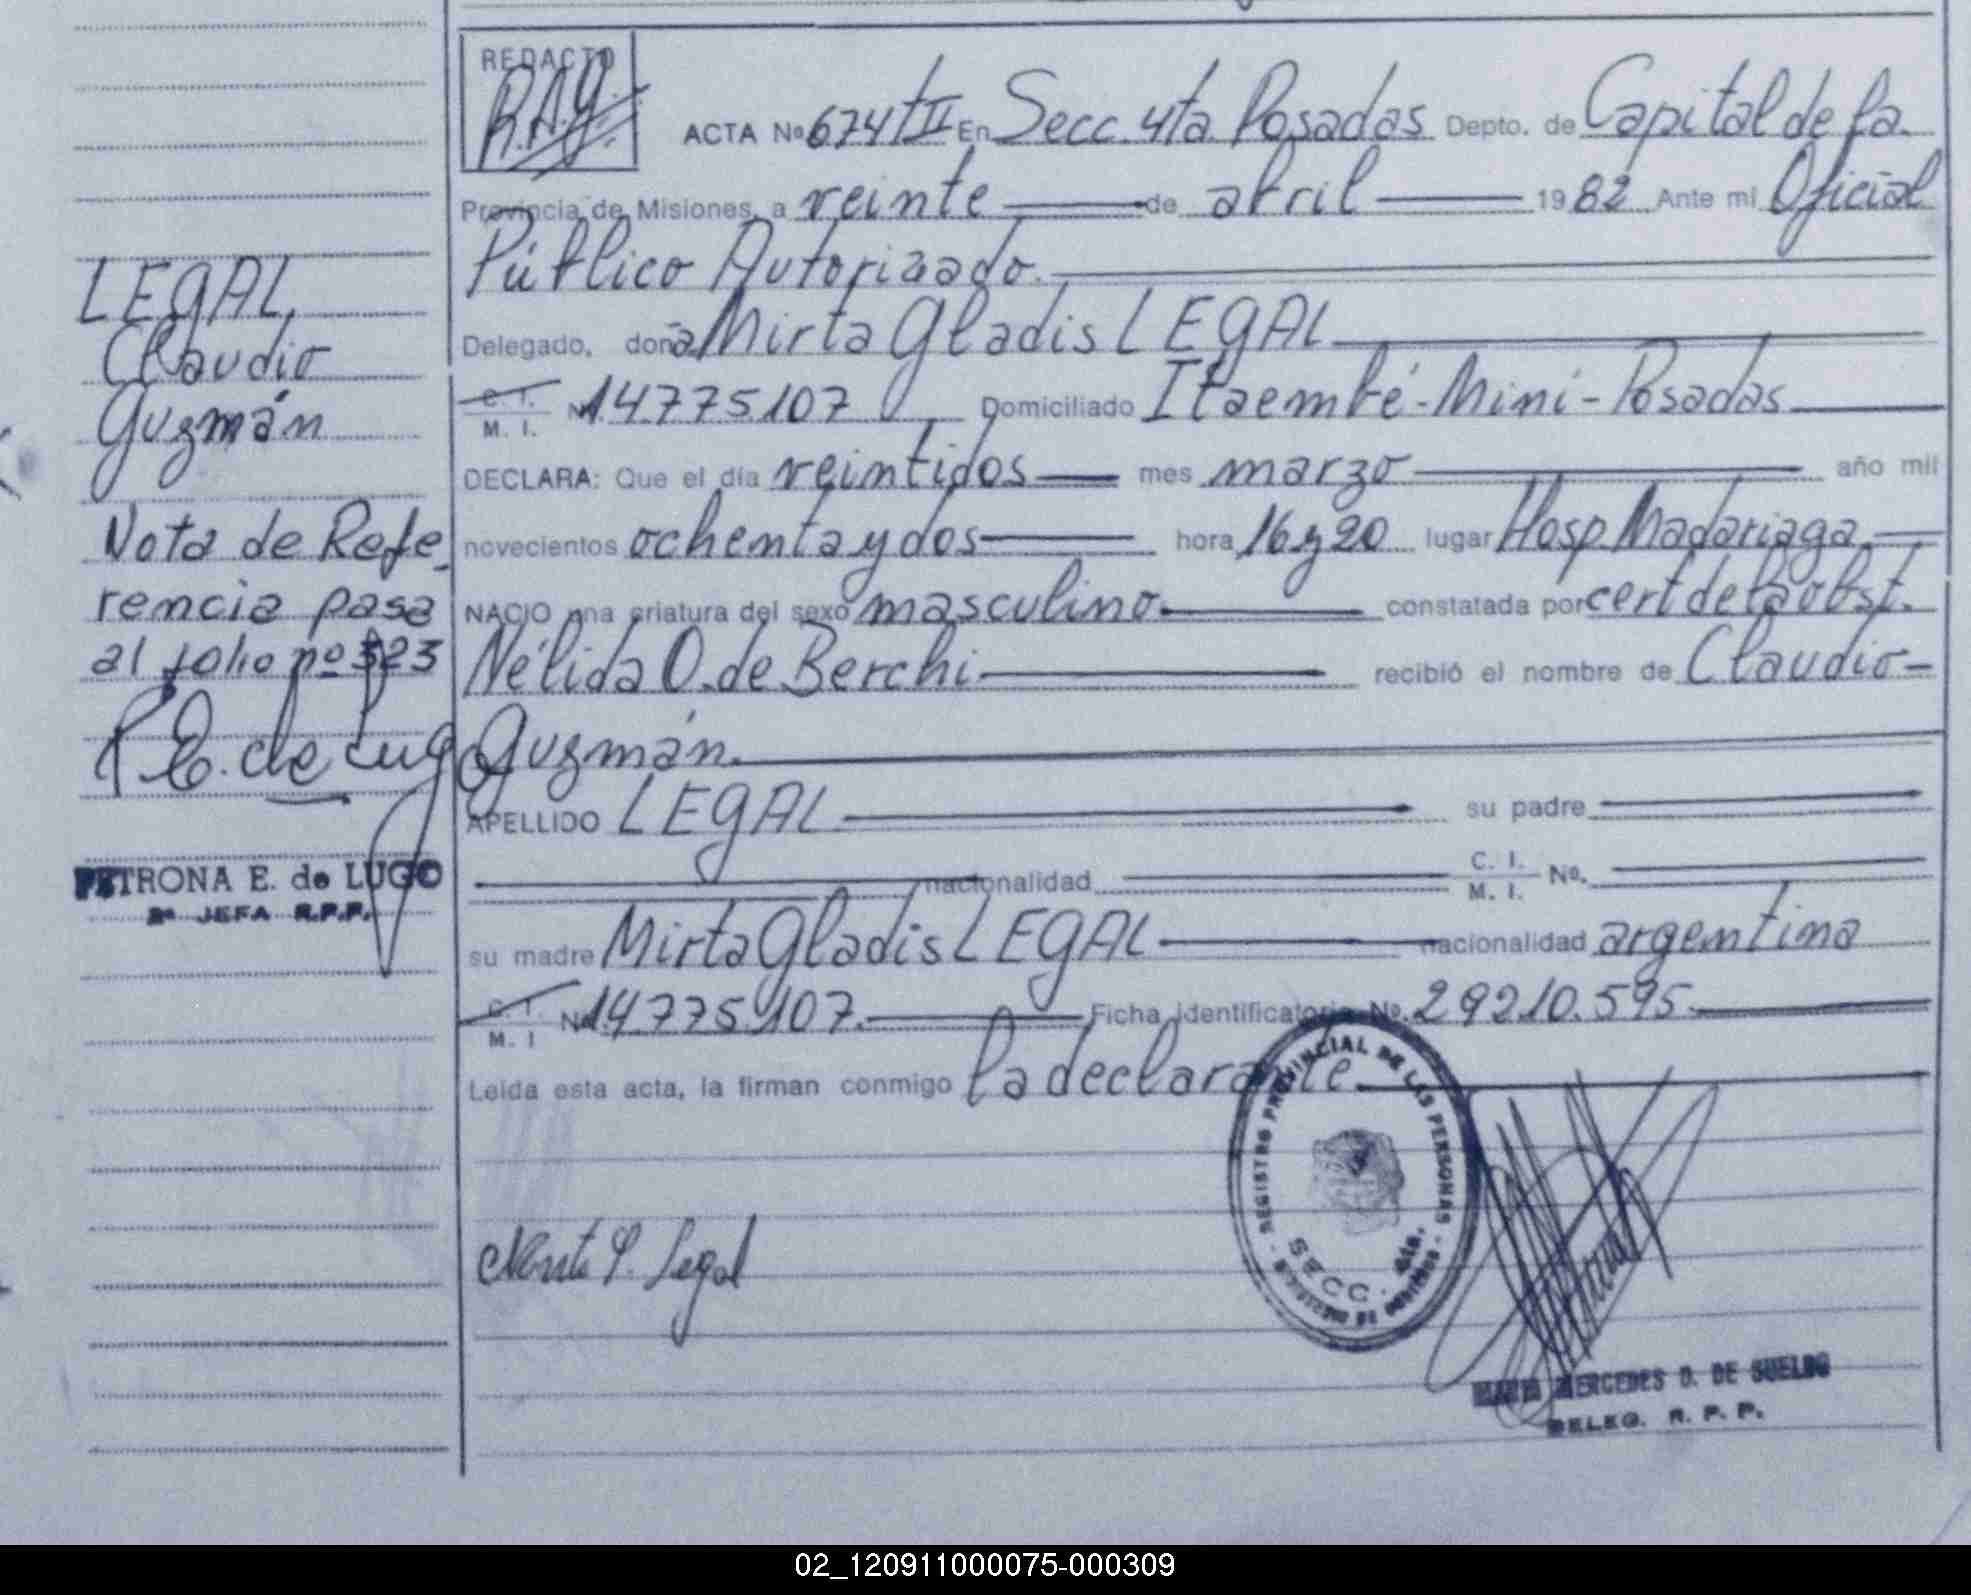 REDACTO
R.A.G.
ACTA Nº 674 tII En Secc. 4ta. Posadas Depto. de Capital de la
Provincia de Misiones, a veinte de abril 1982 Ante mi Oficial
Público Autorizado.
Delegado, doña Mirta Gladis LEGAL
C. I.
M. I. Nº 14775.107 Domiciliado Itaembé-Miní-Posadas
DECLARA: Que el día veintidos mes marzo año mil
novecientos ochenta y dos hora 16 y 20 lugar Hosp. Madariaga
NACIO una criatura del sexo masculino. constatada por cert de la obst.
Nélida O. de Berchi recibió el nombre de Claudio
Guzmán.
APELLIDO LEGAL su padre
nacionalidad C. I.
M. I. Nº.
su madre Mirta Gladis LEGAL nacionalidad argentina
C. I.
M. I Nº 14775107. Ficha identificatoria Nº. 29210.595
Leída esta acta, la firman conmigo la declarante.
LEGAL,
Claudio
Guzmán
Nota de Refe
rencia pasa
al folio nº 323
P E. de Lugo
PETRONA E. de LUGO
2ª JEFA R.P.P.
Mirta G. Legal
REGISTRO PROVINCIAL DE LAS PERSONAS
SECC. 4ta.
MARIA MERCEDES D. DE SUELDO
DELEG. R. P. P.
02_120911000075-000309